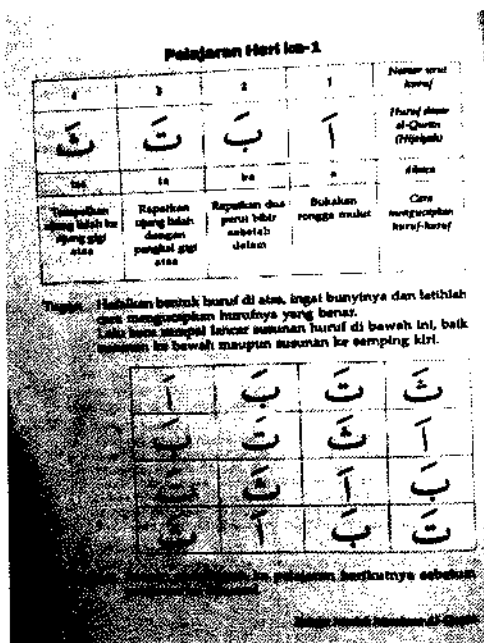 Pelajaran Hari ke-1
4 3 2 1 Nomor urut huruf
ثَ تَ بَ اَ Huruf dasar al-Quran (Hijaiyah)
tsa ta ba a dibaca
Tempelkan ujung lidah ke ujung gigi atas
Rapatkan ujung lidah dengan pangkal gigi atas
Rapatkan dua perut bibir sebelah dalam
Bukakan rongga mulut
Cara mengucapkan huruf-huruf
Tugas: Hafalkan bentuk huruf di atas, ingat bunyinya dan latihlah
cara mengucapkan hurufnya yang benar.
Lalu baca sampai lancar susunan huruf di bawah ini, baik
susunan ke bawah maupun susunan ke samping kiri.
ثَ تَ بَ اَ
اَ ثَ تَ بَ
بَ اَ ثَ تَ
تَ بَ اَ ثَ
ke pelajaran berikutnya sebelum